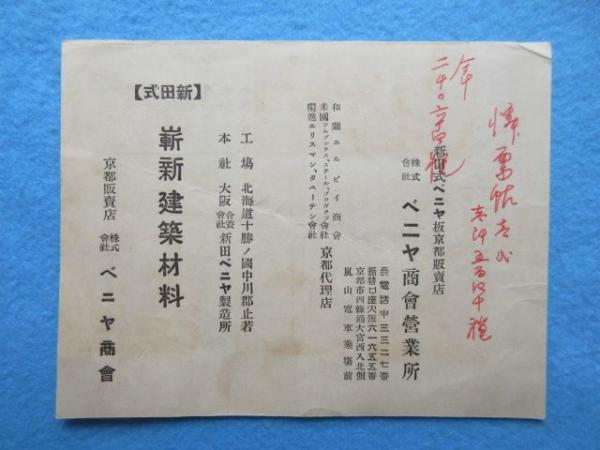 新田式ベニヤ板京都販賣店
株式會社 ベニヤ商會營業所
長電話中三三二七番
振替口座大阪六一六五五番
京都市四條通大宮西入北側
嵐山電車乗場前
和蘭エルビイ商會
米國シムプソクス、スチール、プログクツ會社
獨逸エリスマン、タペーテン會社
京都代理店
工場 北海道十勝ノ國中川郡止若
本社 大阪 合資會社 新田ベニヤ製造所
【新田式】
嶄新建築材料
京都販賣店 株式會社 ベニヤ商會